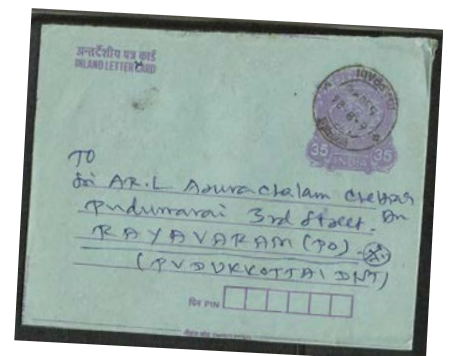 अन्तर्देशीय पत्र कार्ड
INLAND LETTER CARD
35 INDIA 35
TO
Sri AR.L Arunachalam Chettiar
3rd Street.
RAYAVARAM (PO)
(PUDUKKOTTAI DNT)
पिन PIN